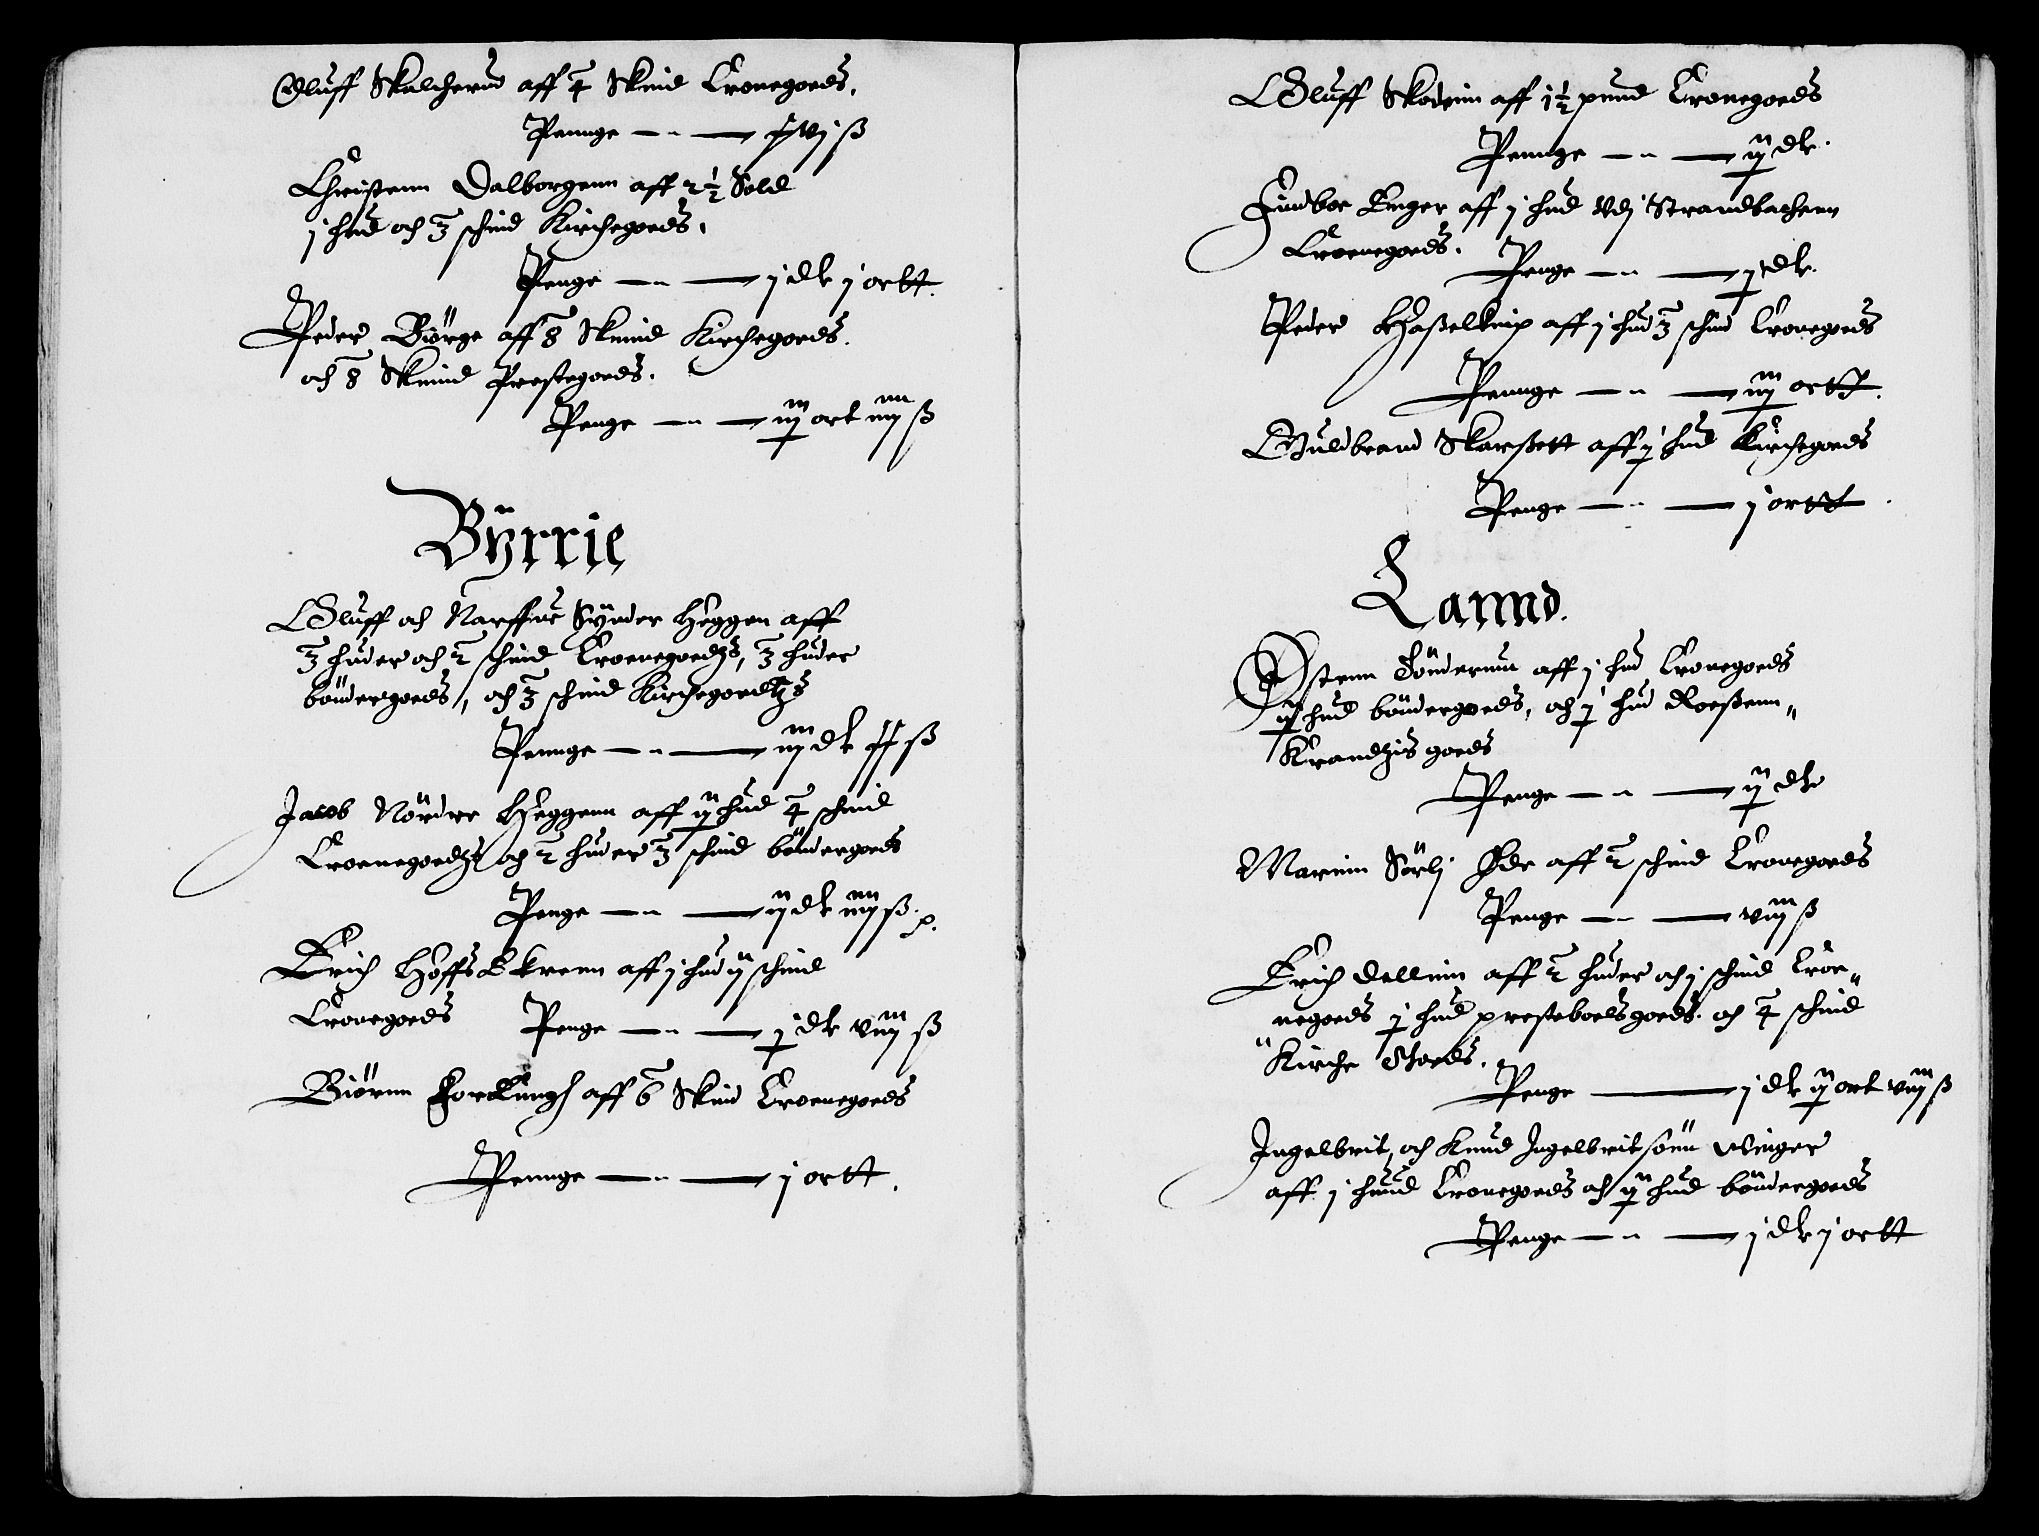 Oluff Skalcherud aff 4 Skind Cronegoeds.
Pennge — xvj ß
Christenn Dalborgenn aff 2½ Sold
j hud och 3 schind Kirchegoeds.
Penge — j dlr j ortt.
Peder Biörge aff 8 Skinnd Kirchegoeds.
och 8 Skinnd Prestegoeds.
Penge — iij ort iiij ß
Byrrie
Oluff och Narffue Synder Heggen aff
3 huder och 2 schind Cronegoedtz, 3 huder
böndergoeds, och 3 schind Kirchegoedtzs
Pennge — iij dlr ß
Jacob Nördre Heggenn aff ij hud 4 schind
Cronegoedtz och 2 huder 3 schind böndergoeds
Penge — ij dlr iiij ß.
Erich Hoffs Ekrenn aff j hud ij schind
Cronegoeds Penge — j dlr viij ß
Biörnn aff 6 Skind Cronegoeds
Pennge — j ortt.
Oluff Skodenn aff 1½ pund Cronegoeds
Pennge — ij dlr.
Gundbor Enger aff j hud Vdj Strandbachenn
Cronegoeds. Penge — j dlr.
Peder aff j hud 3 schind Cronegoeds
Pennge — iij ortt.
Guldbrand Skarßett aff j hud Kirchegoeds
Penge — j ortt.
Lannd.
Östenn Sönderum aff j hud Cronegoeds
ij hud böndergoeds, och j hud Roeßenn„
Krandtzis goeds
Penge — ij dlr
Marinn Sörlj Öde aff 2 schind Cronegoeds
Penge — viij ß
Erich Dellinn aff 2 huder och j schind Cro„
negoeds j hud presteboelsgoeds. och 4 schind
Kirche Goeds.
Penge — j dlr ij ort viij ß
Ingelbrit, och Knud Ingelbritsönn Winger
aff j hund Cronegoeds och ij hud böndergoeds
Penge — j dlr j ortt